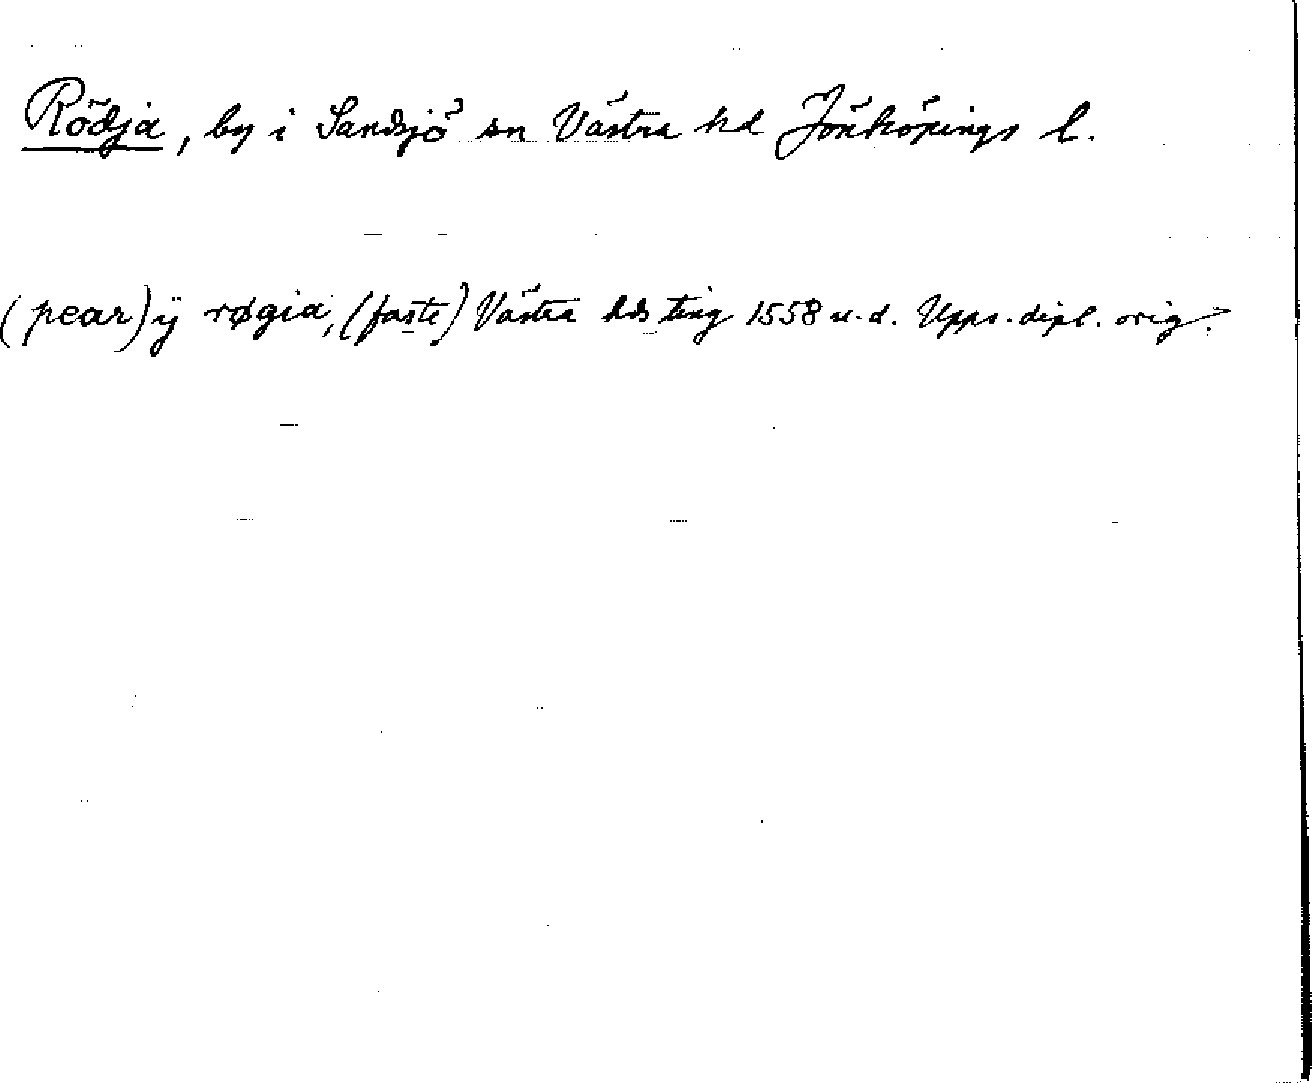 Rödja, by i Sandsjö sn Västra hd Jönköpings l.
(pear) ÿ røgia, (faste) Västra hds ting 1558 u.d. Upps. dipl. orig.